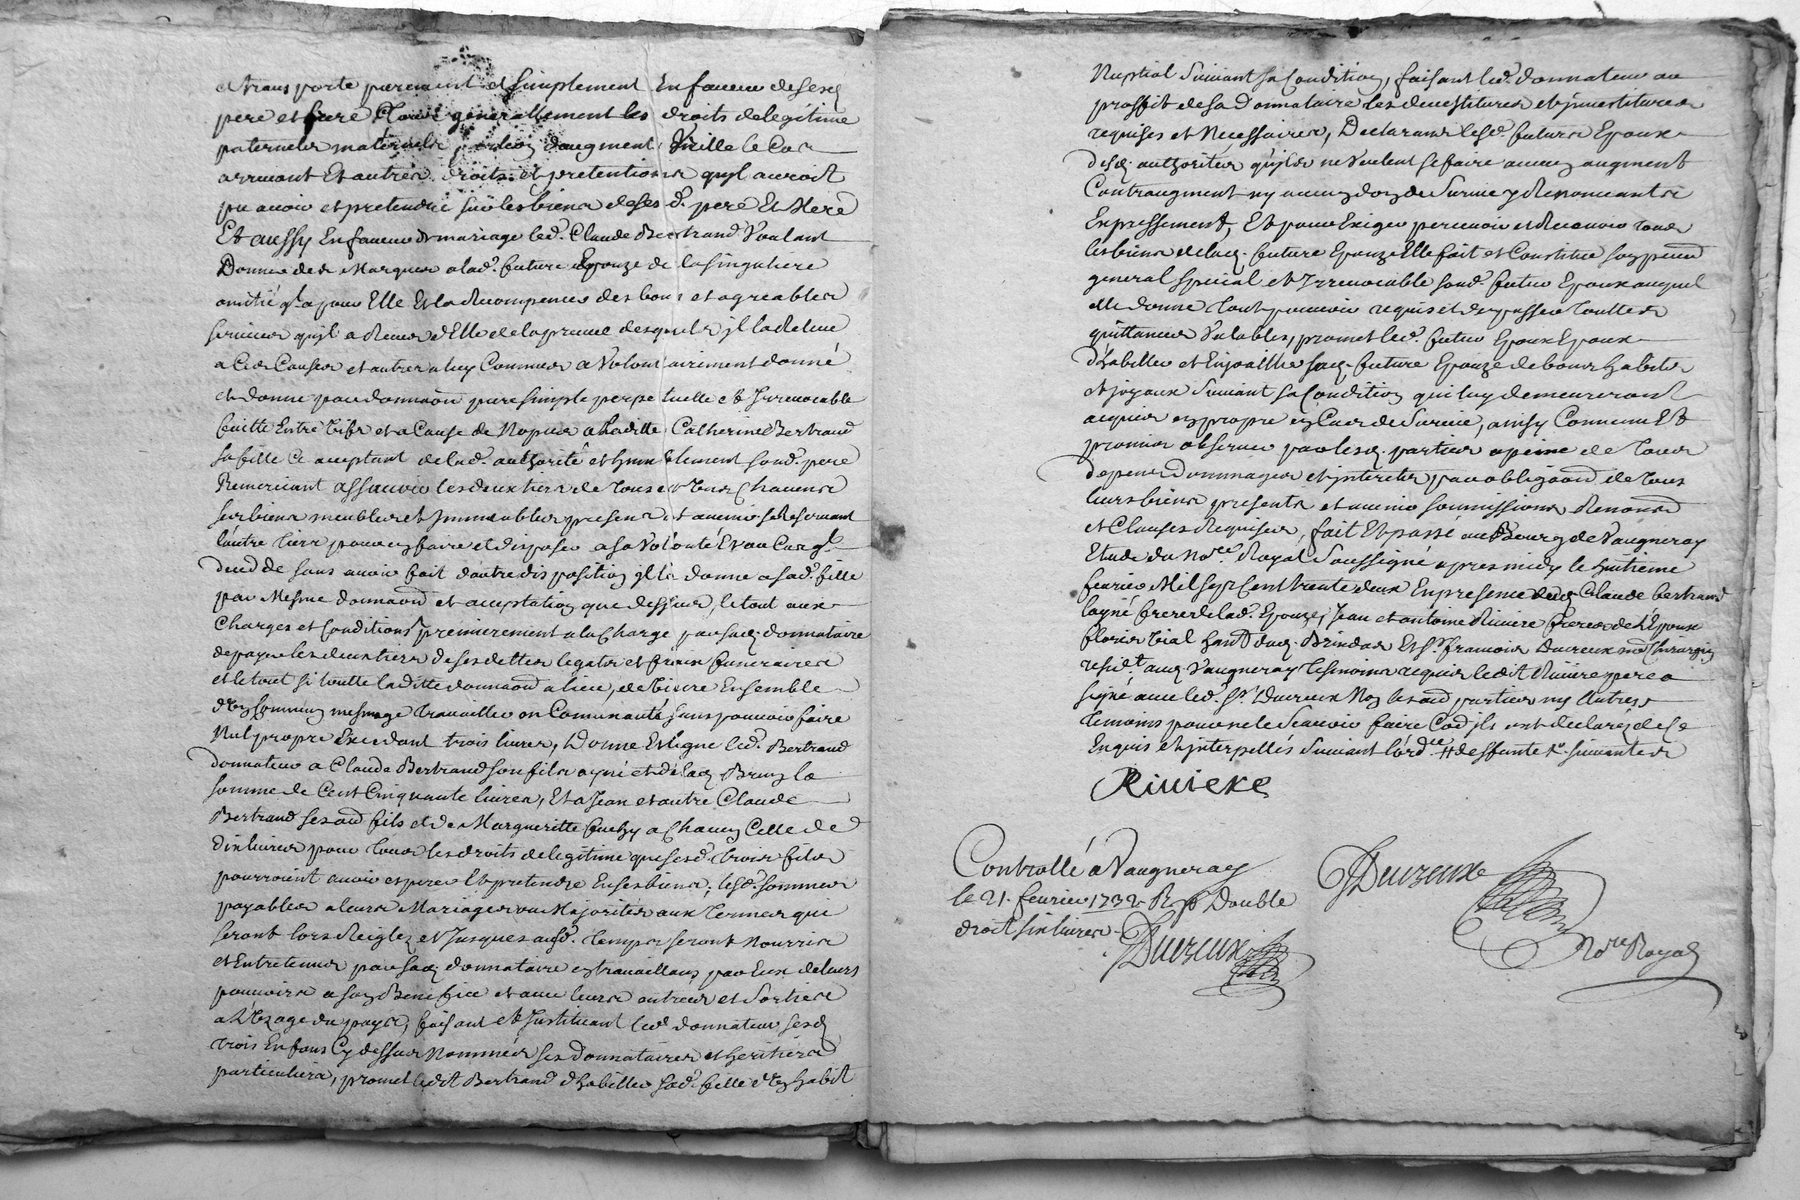 et transporte purement et simplement En faveur desesd
pere et frere Tous generallement les droits de legitime
paternels maternels, daugment Vieille le Cas
arrivant Et autres droits et pretentions qu'jl auroit
pu avoir et pretendre sur les biens deses d. pere Et Mere
Et aussy En faveur de mariage led. Claude Bertrand Voulant
Donner des Marques a lad. future Epouze de la singuliere
amitié ql a pour Elle Et la Recompence des bons et agreables
services qu'jl a Receus d'Elle de la preuve desquels jl la Releve
a Ces Causes et autres a luy Connues a Volontairement donné
et donne par donnaôn pure simple perpetuelle et Irrevocable
faitte Entre Vifs et a Cause de Nopces a Laditte Catherine Bertrand
sa fille Ce aceptant de lad. authorité et humblement sond. pere
Remerciant assavoir les deux tiers de Tous et Uns Chacuns
ses biens meubles et Immeubles presens et avenir se Reservant
l'autre tiers pour en faire et disposer a sa Volonté Et au Cas ql
decedde sans avoir fait d'autre disposition jl le donne a sad. fille
par Mesme donnaôn et aceptation que dessus, le tout aux
Charges et Conditions premierement a la Charge par sad. donnataire
de payer les deux tiers de ses dettes legats et fraix funeraires
et le tout si toutte laditte donnaôn a lieu, de Vivre Ensemble
d'un Commun mesnage travailler en Comunauté sans pouvoir faire
Nul propre Excedant trois livres, Donne Et legue led. Bertrand
donnateur a Claude Bertrand son fils ayné et de lad. Brun la
somme de Cent Cinquante livres, Et a Jean et autre Claude
Bertrand ses aud. fils et de Margueritte a Chacun Celle de
dix livres pour tous les droits de legitime que sesd. trois fils
pourroient avoir esperer Et pretendre En ses biens, lesd. sommes
payables a leurs Mariages ou Majorités aux termes qui
seront lors Reiglez et Jusques aud. temps seront Nourris
et Entretenus par sad. donnataire en travaillans par Eux de leurs
pouvoirs a son Benefice et avec leurs entrées et sorties
a L'Uzage du pays, faisant et Instituant led. donnateur sesd.
trois Enfans Cy dessus Nommés ses donnataires et heritiers
particuliers, promet ledit Bertrand d'habiller sad. fille d'un habit
Nuptial suivant sa Condition, faisant led. donnateur au
proffit de sa donnataire les devestitures et jnvestitures
requises et Necessaires, Declarans lesd. futurs Epoux
desd. authorités qu'jls ne Veulent se faire aucun augment
Contraugment ny aucun don de Survie y Renonceants
Expressement, Et pour Exiger percevoir et Recevoir tous
les biens de lad. future Epouze Elle fait et Constitue son preur
general special et Irrevocable sond. futur Epoux auquel
elle donne tout pouvoir requis et d'en passer touttes
quittances Valables, promet led. futur Epoux Epoux
d'habiller et Enjoailler sad. future Epouze de bons habits
et joyaux suivant sa Condition qui luy demeureront
acquis en propre en Cas de Survie, ainsy Convenu Et
promis observer par lesd. parties a peine de tous
depens dommages et jnterets par obligaôn de tous
leurs biens presents et avenir soumissions Renonôn
et Clauses Requises, fait Et passé au Bourg de Vaugneray
Etude du No.re Royal soussigné apres midy le huitieme
fevrier Mil sept Cent trente deux En presence dud. Claude Bertrand
layné frere de lad. Epouze, Jean et antoine Riviere freres de l'Epoux
floris Vial dud. Brindas Et Sr. francois Ducreux me Chirurgien
resid.t aud. Vaugneray tesmoins requis ledit Riviere pere a
signé avec led. Sr. Ducreux Non les aud. parties ny Autres
temoins pour ne le Scavoir faire Cod. jls ont declaré de Ce
Enquis et Interpellés suivant l'ord.ce
Riviere
Controllé à Vaugneray
le 21. fevrier 1732 R Double
droit six livres
Ducreux
Ducreux
No.re Royal